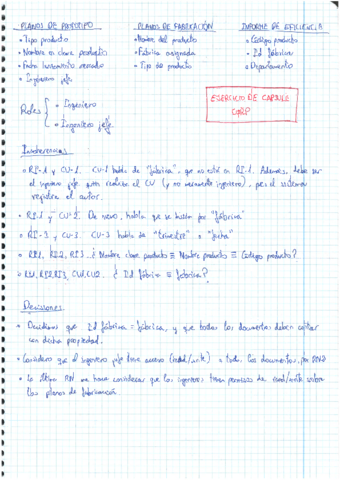 PLANOS DE PROTOTIPO
• Tipo producto
• Nombre en clave producto
• Fecha lanzamiento mercado
• Ingeniero jefe
PLANOS DE FABRICACIÓN
• Nombre del producto
• Fábrica asignada
• Tipo de producto
INFORME DE EFICIENCIA
• Código producto
• Id fábrica
• Departamento
Roles { • Ingeniero
• Ingeniero jefe
EJERCICIO DE CAPSULE CORP
Incoherencias
• RI-1 y CU-1. CU-1 habla de "fábrica", que no está en RI-1. Además, debe ser
el ingeniero jefe quien realice el CU (y no meramente ingeniero), pues el sistema
registra el autor.
• RI-1 y CU-2. De nuevo, habla que se busca por "fábrica"
• RI-3 y CU-3. CU-3 habla de "trimestre" o "fecha"
• RI1, RI2, RI3. ¿Nombre clave producto ≡ Nombre producto ≡ Código producto?
• RI1, RI2, RI3, CU1, CU2. ¿Id fábrica ≡ fábrica?
Decisiones
• Decidimos que Id fábrica = fábrica, y que todos los documentos deben
con dicha propiedad.
• Considero que el ingeniero jefe tiene acceso (read/write) a todos los documentos, por
• La última RN me hace considerar que los ingenieros tienen permisos de read/write sobre
los planos de fabricación.